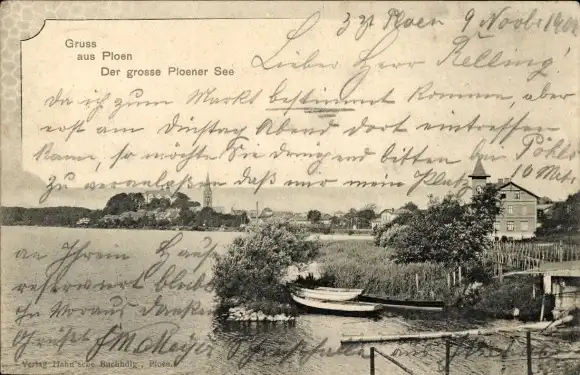 Gruss
aus Ploen
Der grosse Ploener See
Ploen 9 Novbr
Lieber Herr Kelling!
Da ich zum Markt bestimmt kommen, aber
erst am Dinstag Abend dort eintreffen
kann, so möchte Sie dringend bitten bei
zu veranlassen daß mir mein Platz 10 Mtr
an Ihrem Haus
reserviert bleibt
Im Voraus dankend
Grüßt
Verlag Hahn'sche Buchhdlg., Ploen.